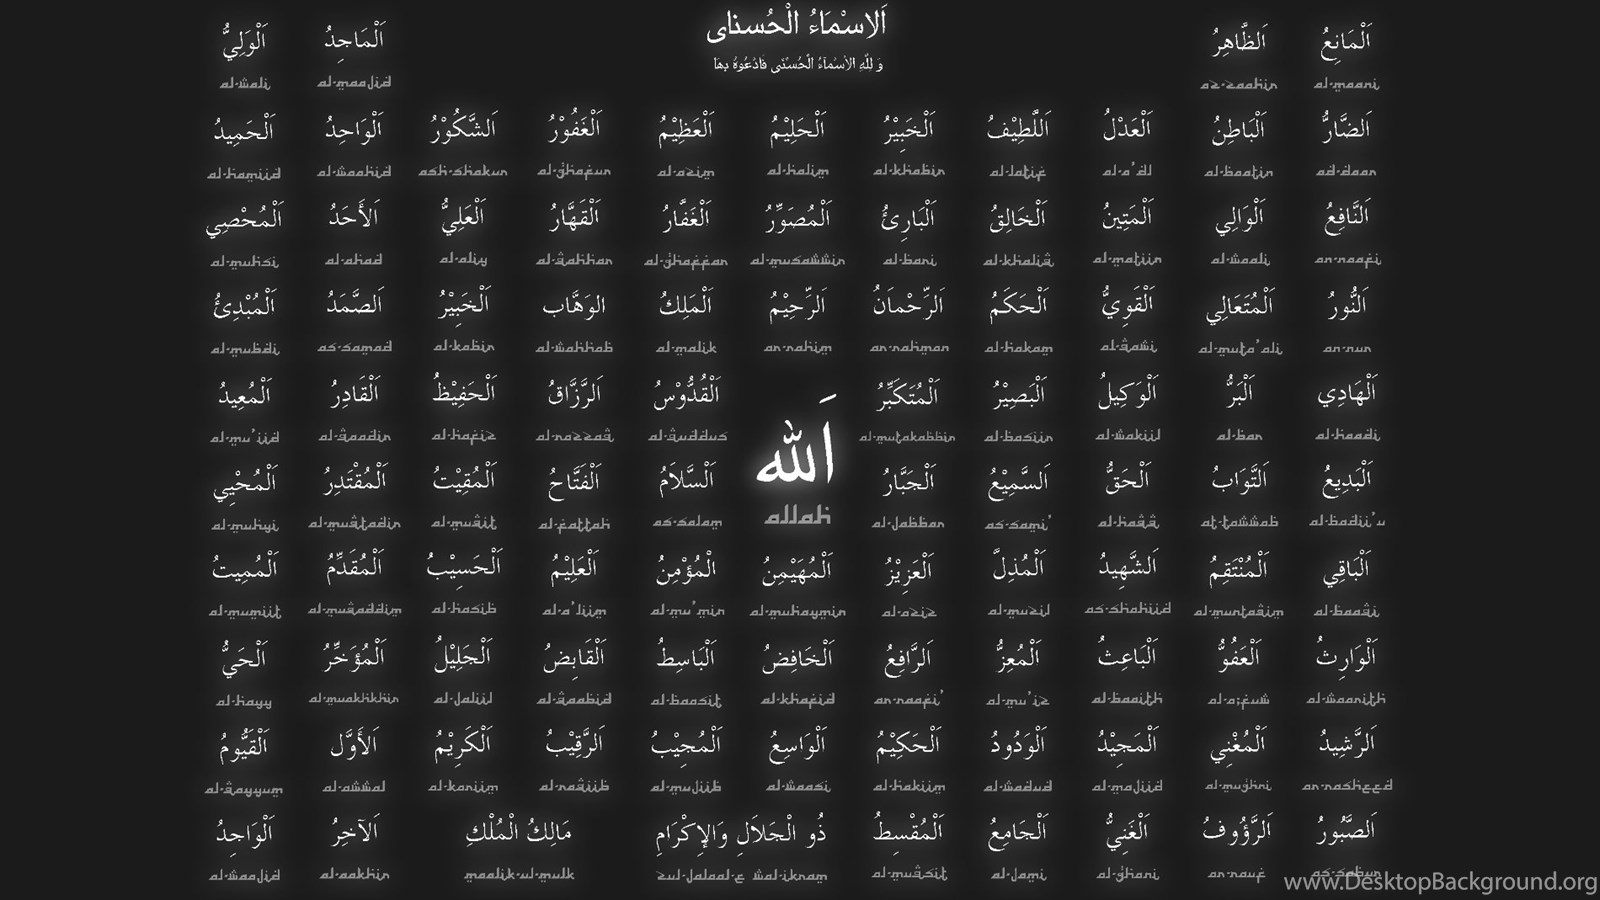 اَلاِسْمَاءُ الْحُسناى
وَ لِلّٰهِ الاَسْمَآءُ الْحُسْنٰى فَادْعُوهُ بِهَا
اَلْمَانِعُ اَلظَّاهِرُ اَلْمَاجِدُ اَلْوَلِيُّ
al-wali al-maajid az-zaahir al-maani
اَلضَّارُّ اَلْبَاطِنُ اَلْعَدْلُ اَللَّطِيْفُ اَلْخَبِيْرُ اَلْحَلِيْمُ اَلْعَظِيْمُ اَلْغَفُوْرُ اَلشَّكُوْرُ اَلْوَاحِدُ اَلْحَمِيدُ
al-hamiid al-waahid ash-shakur al-ghafur al-azim al-halim al-khabir al-latif al-a'dl al-baatin ad-daar
اَلنَّافِعُ اَلْوَالِي اَلْمَتِينُ اَلْخَالِقُ اَلْبَارِئُ اَلْمُصَوِّرُ اَلْغَفَّارُ اَلْقَهَّارُ اَلْعَلِيُّ اَلأَحَدُ اَلْمُحْصِي
al-muhsi al-ahad al-aliy al-qahhar al-ghaffar al-musawwir al-bari al-khaliq al-matiin al-waali an-naafi
اَلنُّورُ اَلْمُتَعَالِي اَلْقَوِيُّ اَلْحَكَمُ اَلرَّحْمَانُ اَلرَّحِيْمُ اَلْمَلِكُ الوَهَّاب اَلْخَبِيْرُ اَلصَّمَدُ اَلْمُبْدِئُ
al-mubdi as-samad al-kabir al-wahhab al-malik ar-rahim ar-rahman al-hakam al-qawi al-muta'ali an-nur
اَلْهَادِي اَلْبَرُّ اَلْوَكِيلُ اَلْبَصِيْرُ اَلْمُتَكَبِّرُ اَلْقُدُّوْسُ اَلرَّزَّاقُ اَلْحَفِيْظُ اَلْقَادِرُ اَلْمُعِيدُ
al-mu'iid al-qaadir al-hafiz al-razzaq al-quddus al-mutakabbir al-basiir al-wakiil al-bar al-haadi
اَلله
allah
اَلْبَدِيعُ اَلتَّوَابُ اَلْحَقُّ اَلسَّمِيْعُ اَلْجَبَّارُ اَلسَّلاَمُ اَلْفَتَّاحُ اَلْمُقِيْتُ اَلْمُقْتَدِرُ اَلْمُحْيِي
al-muhyi al-muqtadir al-muqit al-fattah as-salam al-jabbar as-sami' al-haqq at-tawwab al-badii'u
اَلْبَاقِي اَلْمُنْتَقِمُ اَلشَّهِيدُ اَلْمُذِلَّ اَلْعَزِيْزُ اَلْمُهَيْمِنُ اَلْمُؤْمِنُ اَلْعَلِيْمُ اَلْحَسِيْبُ اَلْمُقَدِّمُ اَلْمُمِيتُ
al-mumiit al-muqaddim al-hasib al-a'liim al-mu'min al-muhaymin al-aziz al-muzil as-shahiid al-muntaqim al-baaqi
اَلْوَارِثُ اَلْعَفُوُّ اَلْبَاعِثُ اَلْمُعِزُّ اَلرَّافِعُ اَلْخَافِضُ اَلْبَاسِطُ اَلْقَابِضُ اَلْجَلِيْلُ اَلْمُؤَخِّرُ اَلْحَيُّ
al-hayy al-muakhkhir al-jaliil al-qaabid al-baasit al-khafid ar-raafi' al-mu'iz al-baaith al-a;fuw al-waarith
اَلرَّشِيدُ اَلْمُغْنِي اَلْمَجِيْدُ اَلْوَدُودُ اَلْحَكِيْمُ اَلْوَاسِعُ اَلْمُجِيْبُ اَلرَّقِيْبُ اَلْكَرِيْمُ اَلأَوَّل اَلْقَيُّومُ
al-qayyum al-awwal al-kariim al-raqiib al-mujiib al-waasi al-hakiim al-wadud al-majiid al-mughni ar-rasheed
اَلصَّبُورُ اَلرَّؤُوفُ اَلْغَنِيُّ اَلْجَامِعُ اَلْمُقْسِطُ ذُو الْجَلاَلِ وَالإِكْرَامِ مَالِكُ الْمُلْكِ اَلآخِرُ اَلْوَاجِدُ
al-waajid al-aakhir maalik-ul-mulk zul-jalaal-e wal-ikram al-muqsit al-jami al-ghani ar-rauf as-sabur
www.DesktopBackground.org